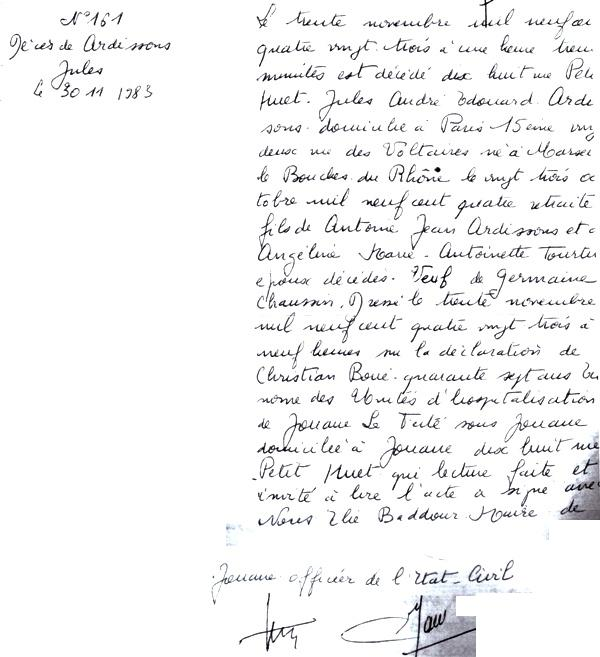 N° 161
Décès de Ardissons
Jules
le 30 11 1983
Le trente novembre mil neuf cen
quatre vingt trois à une heure tren
minutes est décédé dix huit rue Peti
Huet. Jules André Edouard Ardi
sons domicilié à Paris 15ème ving
deux rue des Volontaires né à Marsei
le Bouches du Rhône le vingt trois oc
tobre mil neuf cent quatre retraité
fils de Antoine Jean Ardissons et d
Angéline Marie-Antoinette
époux décédés. Veuf de Germaine
Chaussin. Dressé le trente novembre
mil neuf cent quatre vingt trois à
neuf heures sur la déclaration de
Christian Boué quarante sept ans
nome des Unités d'hospitalisation
de Jouarre La Ferté sous Jouarre
domicilié à Jouarre dix huit rue
Petit Huet qui lecture faite et
invité à lire l'acte a signé avec
Nous Elie Baddour Maire de
Jouarre officier de l'Etat-Civil